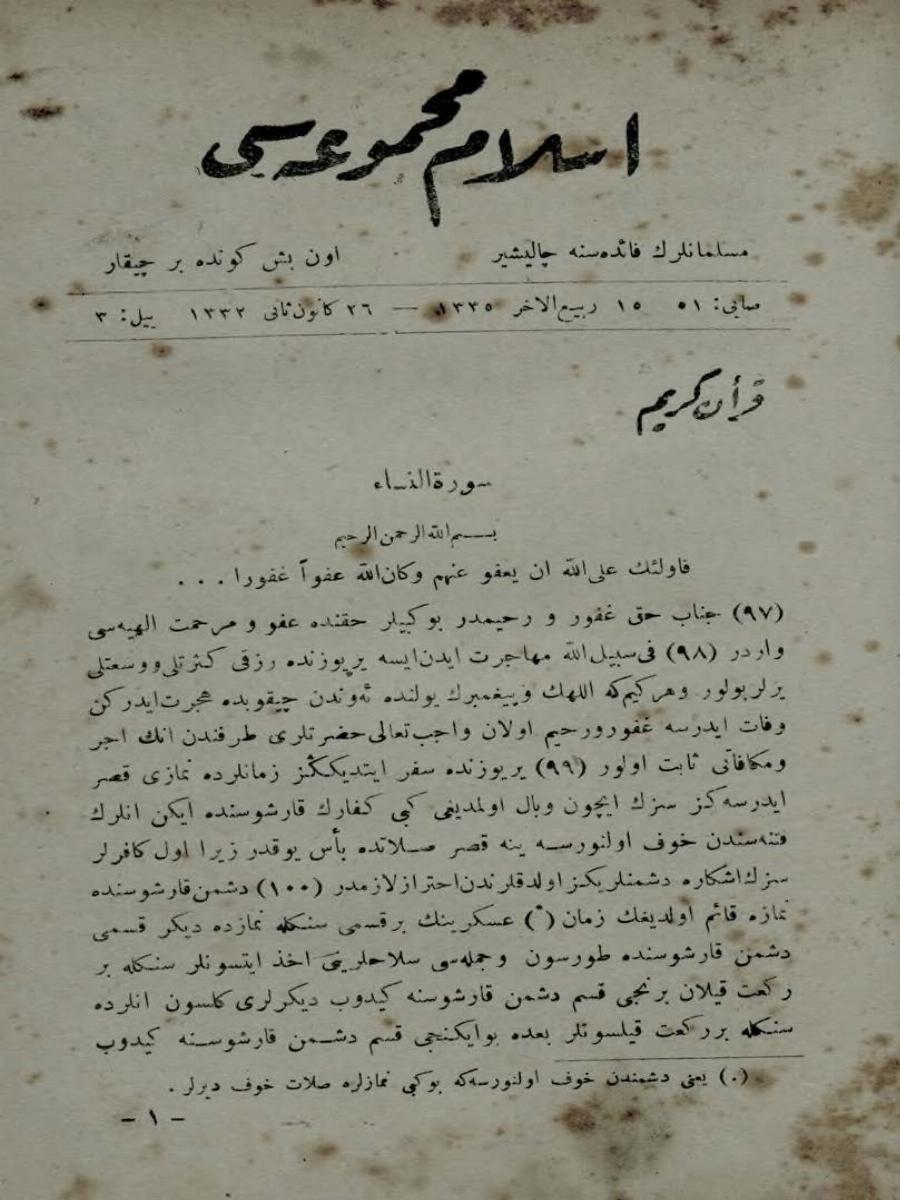 اسلام مجموعه‌سی
مسلمانلرك فائده‌سنه چالیشیر
اون بش كونده بر چیقار
صایی: ٥١ ١٥ ربیع الاخر ١٣٣٥ — ٢٦ كانون ثانی ١٣٣٢ ییل: ٣
قرأن كریم
سورة النساء
بسم الله الرحمن الرحیم
فاولئك علی الله ان یعفو عنهم وكان الله عفواً غفورا . . .
(٩٧) جناب حق غفور و رحیمدر بو كبیلر حقنده عفو و مرحمت الهیه‌سی
واردر (٩٨) فی سبیل الله مهاجرت ایدن ایسه یریوزنده رزقی كثرتلی ووسعتلی
یرلر بولور وهركیم كه اللهك وپیغمبرك یولنده ئه‌وندن چیقوبده هجرت ایدركن
وفات ایدرسه غفور ورحیم اولان واجب تعالی حضرتلری طرفندن انك اجر
ومكافاتی ثابت اولور (٩٩) یریوزنده سفر ایتدیككز زمانلرده نمازی قصر
ایدرسه‌كز سزك ایچون وبال اولمدیغی كبی كفارك قارشوسنده ایكن انلرك
فتنه‌سندن خوف اولنورسه ینه قصر صلاتده بأس یوقدر زیرا اول كافرلر
سزك اشكاره دشمنلریكز اولدقلرندن احتراز لازمدر (١٠٠) دشمن قارشوسنده
نمازه قائم اولدیغك زمان (°) عسكرینك برقسمی سنكله نمازده دیكر قسمی
دشمن قارشوسنده طورسون وجمله‌سی سلاحلرینی اخذ ایتسونلر سنكله بر
ركعت قیلان برنجی قسم دشمن قارشوسنه كیدوب دیكرلری كلسون انلرده
سنكله برركعت قیلسونلر بعده بوایكنجی قسم دشمن قارشوسنه كیدوب
(٠) یعنی دشمندن خوف اولنورسه‌كه بوكبی نمازلره صلات خوف دیرلر .
- ١ -